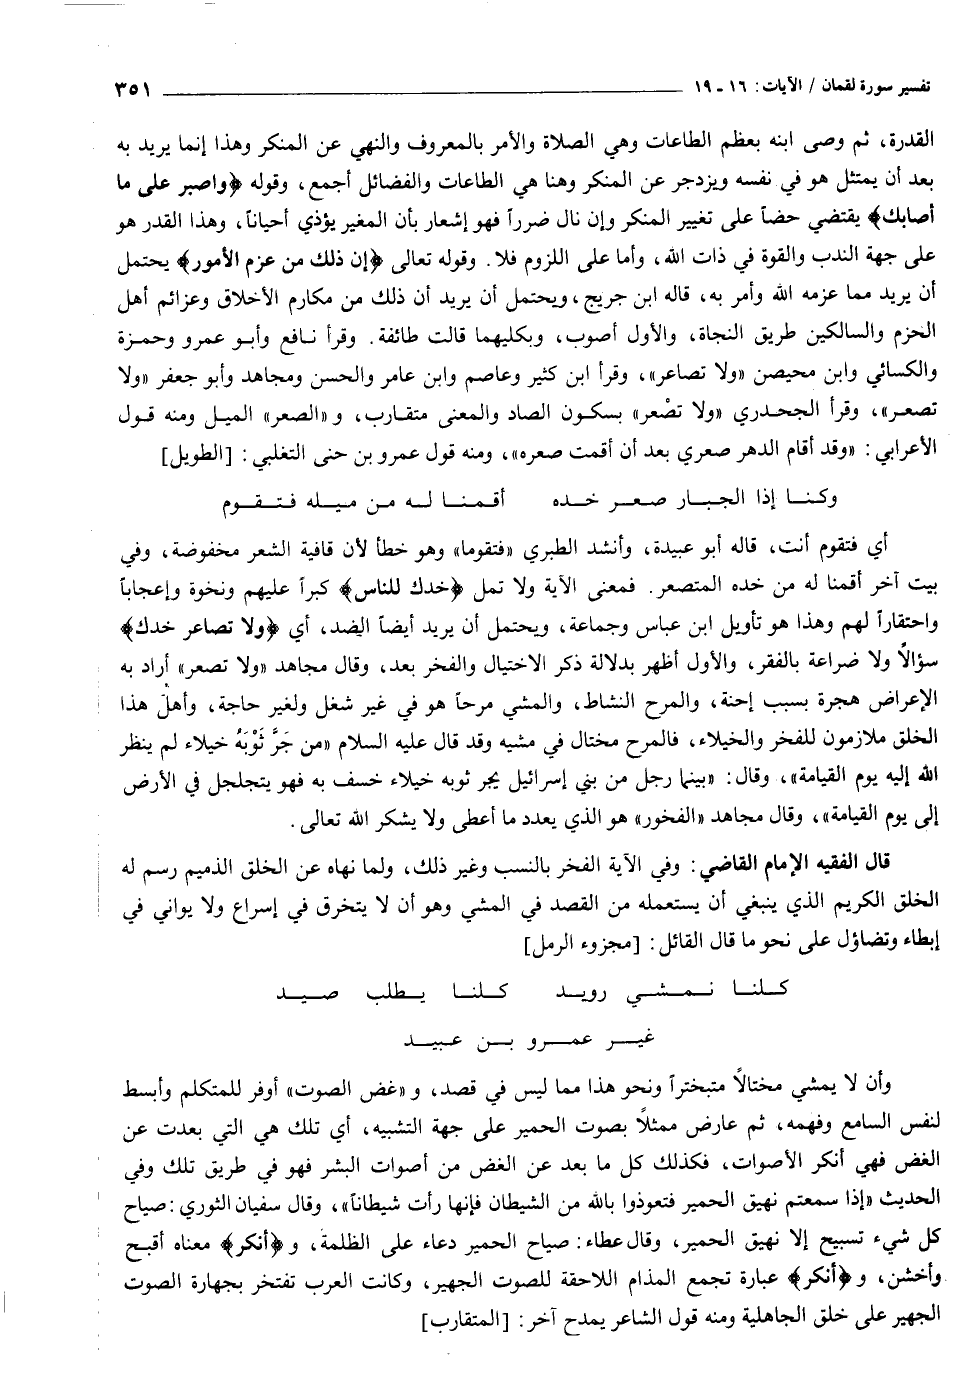 تفسير سورة لقمان / الآيات: ١٦ ـ ١٩ ٣٥١
القدرة، ثم وصى ابنه بعظم الطاعات وهي الصلاة والأمر بالمعروف والنهي عن المنكر وهذا إنما يريد به
بعد أن يمتثل هو في نفسه ويزدجر عن المنكر وهنا هي الطاعات والفضائل أجمع، وقوله ﴿واصبر على ما
أصابك﴾ يقتضي حضاً على تغيير المنكر وإن نال ضرراً فهو إشعار بأن المغير يؤذي أحياناً، وهذا القدر هو
على جهة الندب والقوة في ذات الله، وأما على اللزوم فلا. وقوله تعالى ﴿إن ذلك من عزم الأمور﴾ يحتمل
أن يريد مما عزمه الله وأمر به، قاله ابن جريج، ويحتمل أن يريد أن ذلك من مكارم الأخلاق وعزائم أهل
الحزم والسالكين طريق النجاة، والأول أصوب، وبكليهما قالت طائفة. وقرأ نافع وأبو عمرو وحمزة
والكسائي وابن محيصن «ولا تصاعر»، وقرأ ابن كثير وعاصم وابن عامر والحسن ومجاهد وأبو جعفر «ولا
تصعر»، وقرأ الجحدري «ولا تصْعر» بسكون الصاد والمعنى متقارب، و «الصعر» الميل ومنه قول
الأعرابي: «وقد أقام الدهر صعري بعد أن أقمت صعره»، ومنه قول عمرو بن حنى التغلبي: [الطويل]
وكنا إذا الجبار صعر خده أقمنا له من ميله فتقوم
أي فتقوم أنت، قاله أبو عبيدة، وأنشد الطبري «فتقوما» وهو خطأ لأن قافية الشعر مخفوضة، وفي
بيت آخر أقمنا له من خده المتصعر. فمعنى الآية ولا تمل ﴿خدك للناس﴾ كبراً عليهم ونخوة وإعجاباً
واحتقاراً لهم وهذا هو تأويل ابن عباس وجماعة، ويحتمل أن يريد أيضاً الضد، أي ﴿ولا تصاعر خدك﴾
سؤالاً ولا ضراعة بالفقر، والأول أظهر بدلالة ذكر الاختيال والفخر بعد، وقال مجاهد «ولا تصعر» أراد به
الإعراض هجرة بسبب إحنة، والمرح النشاط، والمشي مرحاً هو في غير شغل ولغير حاجة، وأهل هذا
الخلق ملازمون للفخر والخيلاء، فالمرح مختال في مشيه وقد قال عليه السلام «من جَرَّ ثَوْبَهُ خيلاء لم ينظر
الله إليه يوم القيامة»، وقال: «بينما رجل من بني إسرائيل يجر ثوبه خيلاء خسف به فهو يتجلجل في الأرض
إلى يوم القيامة»، وقال مجاهد «الفخور» هو الذي يعدد ما أعطى ولا يشكر الله تعالى.
قال الفقيه الإمام القاضي: وفي الآية الفخر بالنسب وغير ذلك، ولما نهاه عن الخلق الذميم رسم له
الخلق الكريم الذي ينبغي أن يستعمله من القصد في المشي وهو أن لا يتخرق في إسراع ولا يواني في
إبطاء وتضاؤل على نحو ما قال القائل: [مجزوء الرمل]
كلنا نمشي رويد كلنا يطلب صيد
غير عمرو بن عبيد
وأن لا يمشي مختالاً متبختراً ونحو هذا مما ليس في قصد، و «غض الصوت» أوفر للمتكلم وأبسط
لنفس السامع وفهمه، ثم عارض ممثلاً بصوت الحمير على جهة التشبيه، أي تلك هي التي بعدت عن
الغض فهي أنكر الأصوات، فكذلك كل ما بعد عن الغض من أصوات البشر فهو في طريق تلك وفي
الحديث «إذا سمعتم نهيق الحمير فتعوذوا بالله من الشيطان فإنها رأت شيطاناً»، وقال سفيان الثوري: صياح
كل شيء تسبيح إلا نهيق الحمير، وقال عطاء: صياح الحمير دعاء على الظلمة، و ﴿أنكر﴾ معناه أقبح
وأخشن، و ﴿أنكر﴾ عبارة تجمع المذام اللاحقة للصوت الجهير، وكانت العرب تفتخر بجهارة الصوت
الجهير على خلق الجاهلية ومنه قول الشاعر يمدح آخر: [المتقارب]